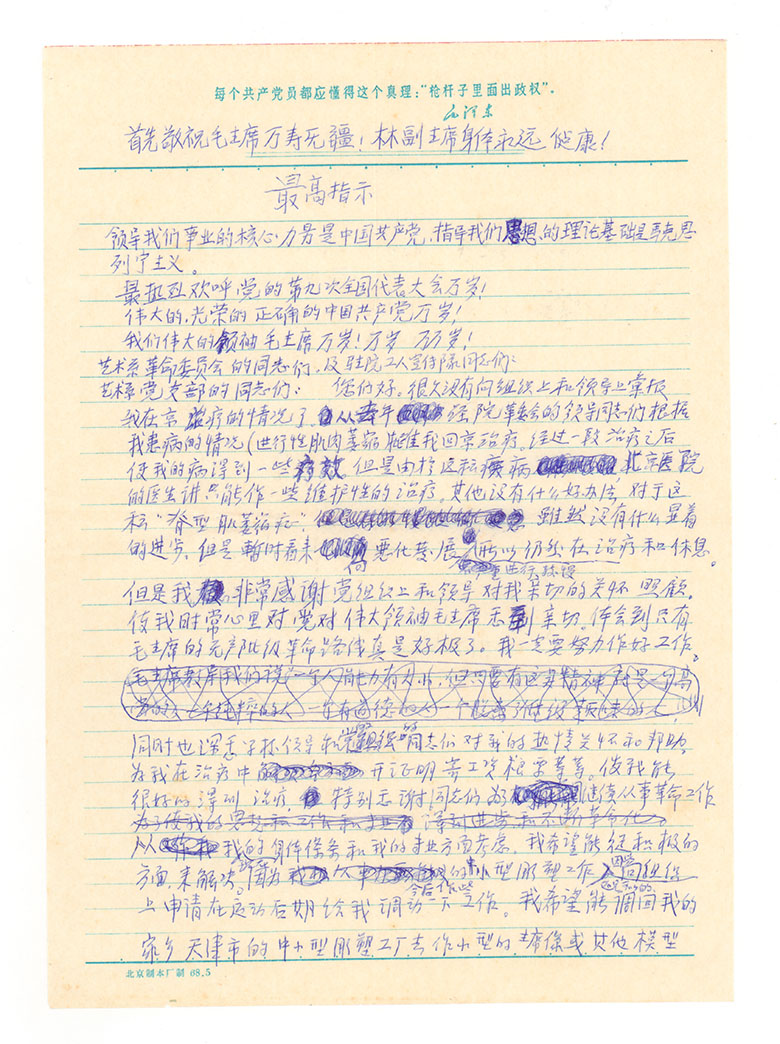 每个共产党员都应懂得这个真理：“枪杆子里面出政权”。
毛泽东
首先敬祝毛主席万寿无疆！林副主席身体永远健康！
最高指示
领导我们事业的核心力量是中国共产党，指导我们思想的理论基础是马克思
列宁主义。
最热烈欢呼党的第九次全国代表大会万岁！
伟大的，光荣的正确的中国共产党万岁！
我们伟大的领袖毛主席万岁！万岁 万万岁！
艺术系革命委员会的同志们，及驻院工人宣传队同志们：
艺术系党支部的同志们： 您们好。很久没有向组织上和领导上汇报
我在京治疗的情况了，从去年 经院革委会的领导同志们根据
我患病的情况（进行性肌肉萎缩 批准我回京治疗。经过一段治疗之后
使我的病得到一些疗效，但是由于这种疾病 北京医院
的医生讲只能作一些维护性的治疗。其他没有什么好办法，对于这
种“脊型肌萎缩症”， 虽然没有什么显着
的进步，但是暂时看来 恶化发展，所以仍然在治疗和休息。
进行锻
但是我非常感谢党组织上和领导对我亲切的关怀照顾。
使我时常心里对党对伟大领袖毛主席感到亲切。体会到只有
毛主席的无产阶级革命路线真是好极了。我一定要努力作好工作。
毛主席教导我们说“一个人能力有大小，但只要有这点精神 就是一个高
尚的人 一个纯粹的人 一个有道德的人 一个脱离了低级趣味的人，
同时也深感 领导和党组织 同志们对我的热情关怀和帮助，
为我在治疗中 开证明寄工资粮票等等。使我能
很好的得到治疗。 特别感谢同志们。为 继续从事革命工作
为了使我的思想和工作和事业 得到进步和不断革命化
从 我的身体条 和我的事业方面考虑，我希望能从积极的
方面，来解决。因为我 从事 的中小型雕塑工作 向组织
今后作些
上申请在运动后期给我调动一下工作。我希望能调回我的
家乡天津市的中小型雕塑工厂去作小型的主席像或其他模型
北京制本厂制 68.5